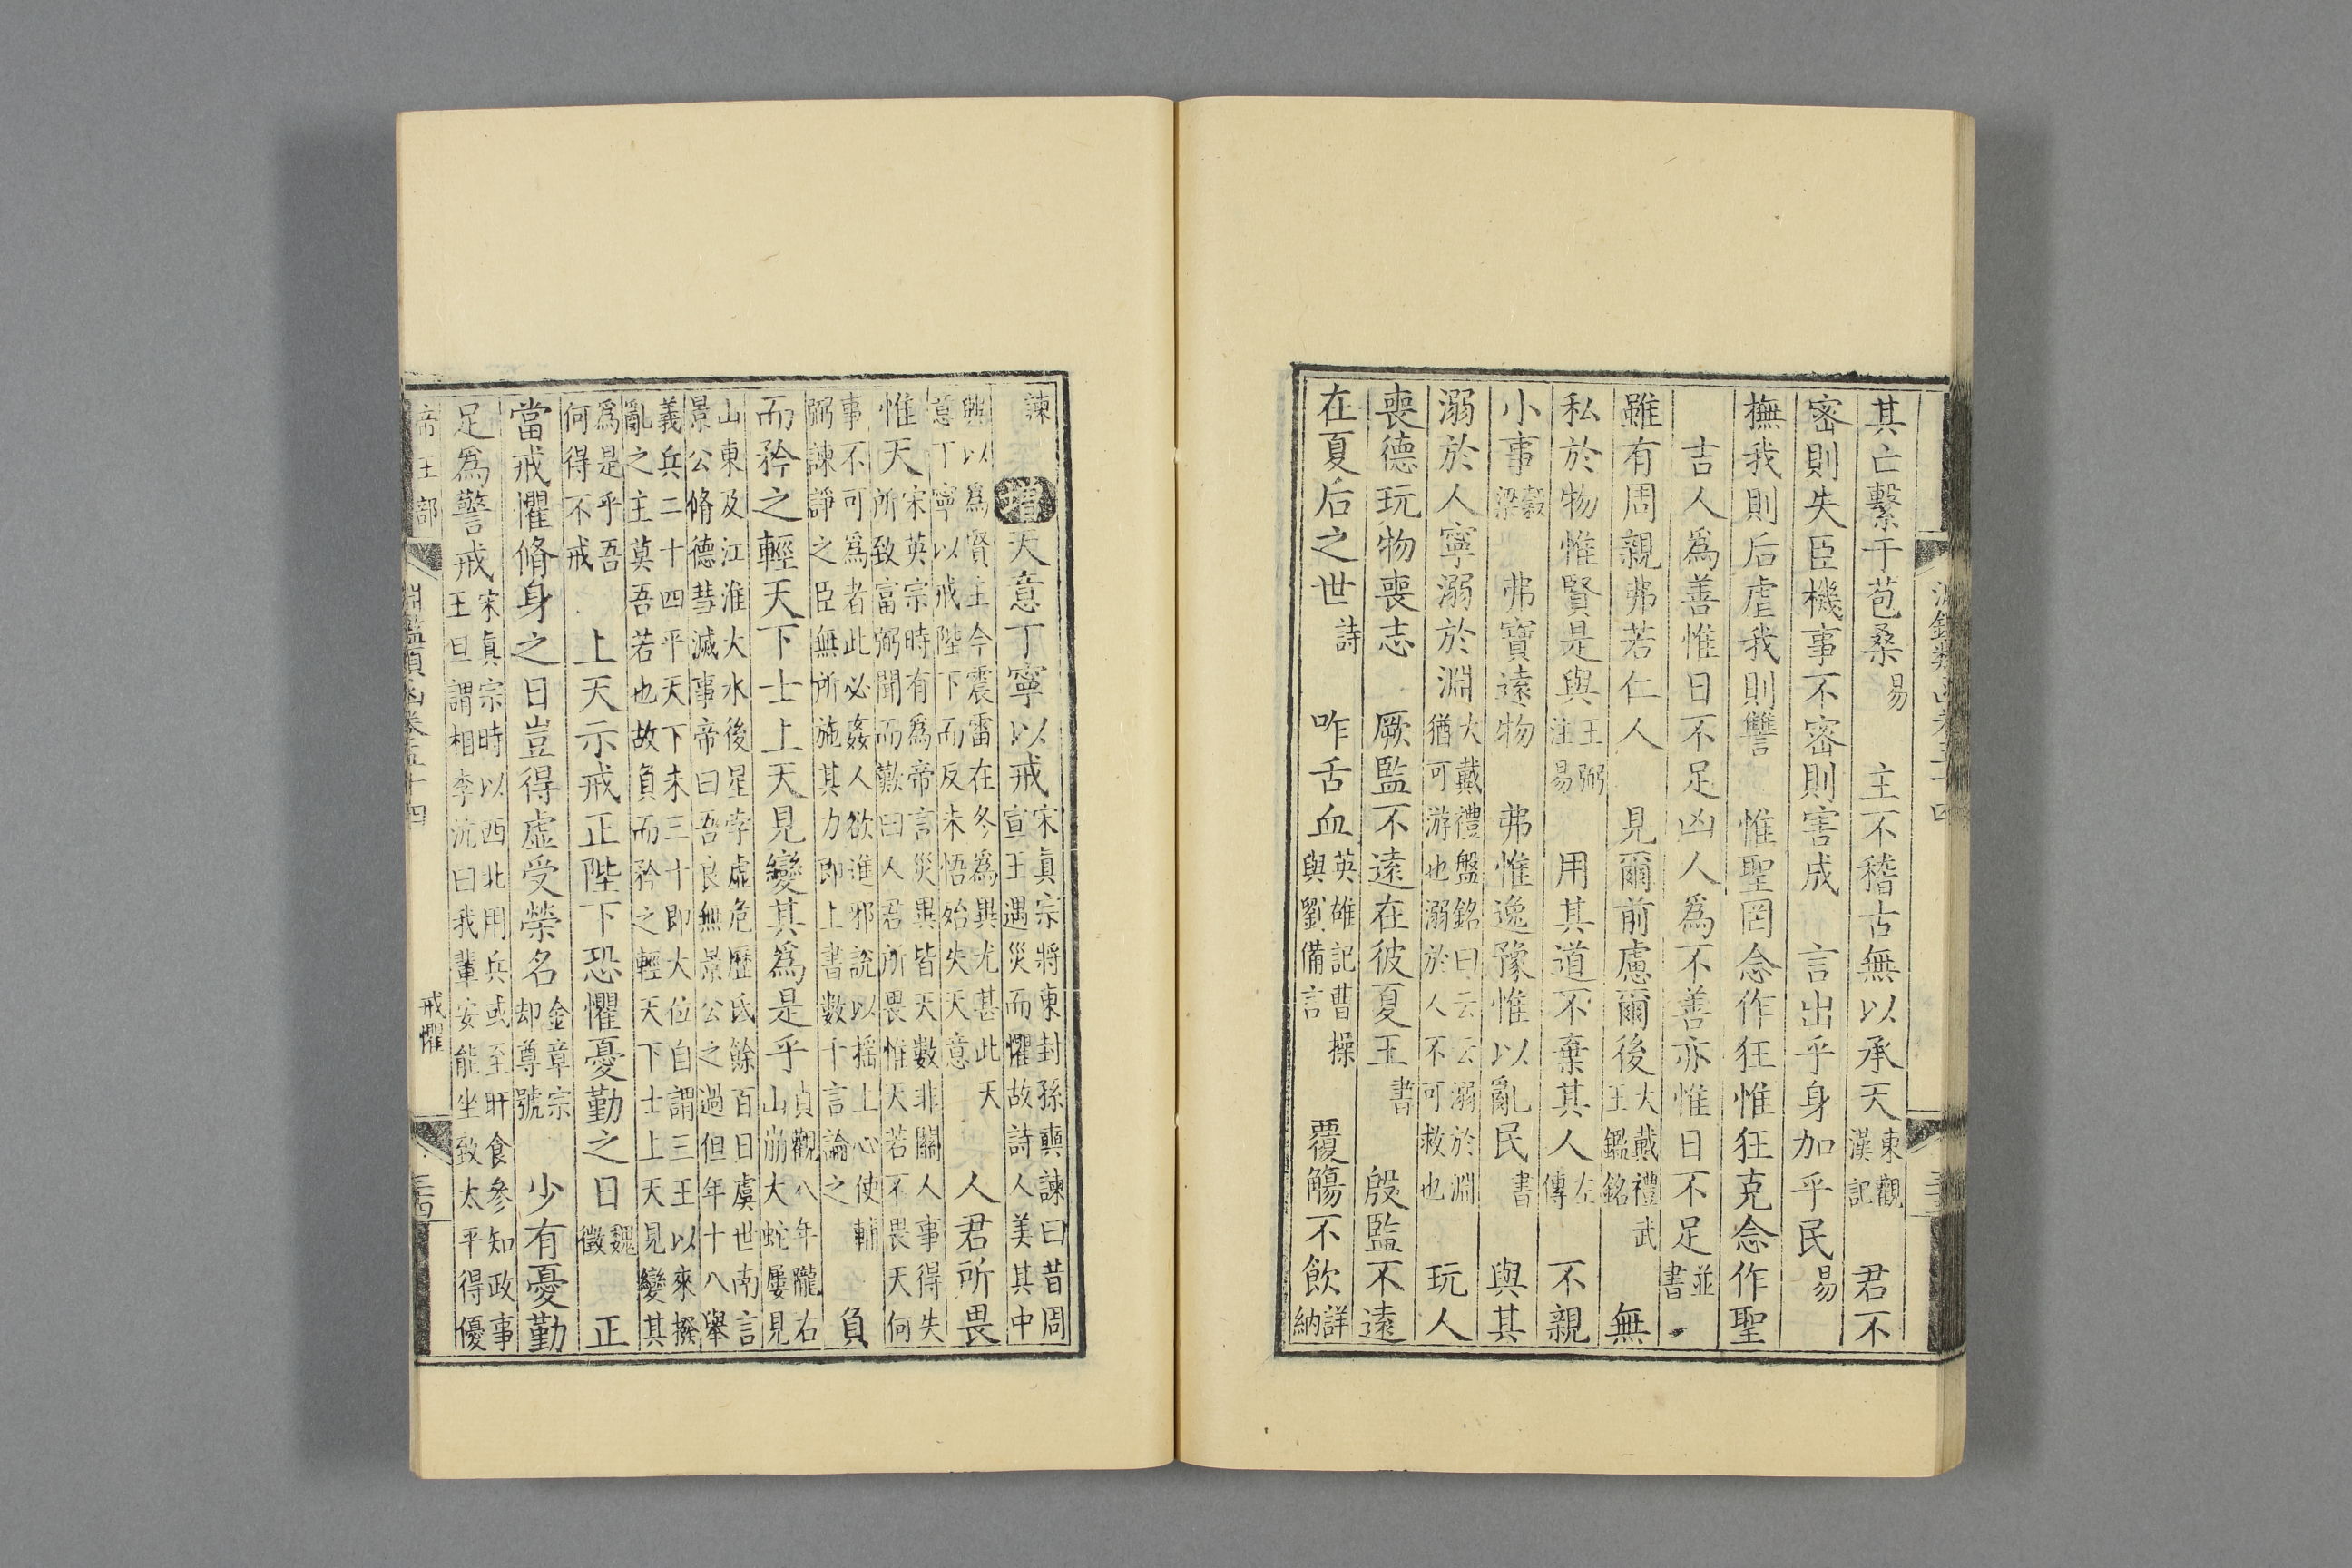 其亡繫于苞桑易　主不稽古無以承天東觀漢記　君不
密則失臣機事不密則害成　言出乎身加乎民易
撫我則后虐我則讐　惟聖罔念作狂惟狂克念作聖
吉人爲善惟日不足凶人爲不善亦惟日不足並書
雖有周親弗若仁人　見爾前慮爾後大戴禮武王鑑銘　無
私於物惟賢是與王弼注易　用其道不棄其人左傳　不親
小事穀梁　弗寶遠物　弗惟逸豫惟以亂民書　與其
溺於人寧溺於淵大戴禮盤銘曰云云溺於淵猶可游也溺於人不可救也　玩人
喪德玩物喪志　厥監不遠在彼夏王書　殷監不遠
在夏后之世詩　咋舌血英雄記曹操與劉備言　覆觴不飲詳納
諫　增天意丁寧以戒宋真宗將東封孫奭諫曰昔周宣王遇災而懼故詩人美其中
興以爲賢主今震雷在冬爲異尤甚此天意丁寧以戒陛下而反未悟始失天意　人君所畏
惟天宋英宗時有爲帝言災異皆天數非關人事得失所致富弼聞而歎曰人君所畏惟天若不畏天何
事不可爲者此必姦人欲進邪說以搖上心使輔弼諫諍之臣無所施其力即上書數千言論之　負
而矜之輕天下士上天見變其爲是乎貞觀八年隴右山崩大蛇屢見
山東及江淮大水後星孛虛危歷氐餘百日虞世南言景公脩德彗滅事帝曰吾良無景公之過但年十八舉
義兵二十四平天下未三十即大位自謂三王以來撥亂之主莫吾若也故負而矜之輕天下士上天見變其
爲是乎吾何得不戒　上天示戒正陛下恐懼憂勤之日魏徵　正
當戒懼脩身之日豈得虛受榮名金章宗却尊號　少有憂勤
足爲警戒宋真宗時以西北用兵或至旰食參知政事王旦謂相李沆曰我輩安能坐致太平得優
帝王部　淵鑑類函卷五十四　戒懼